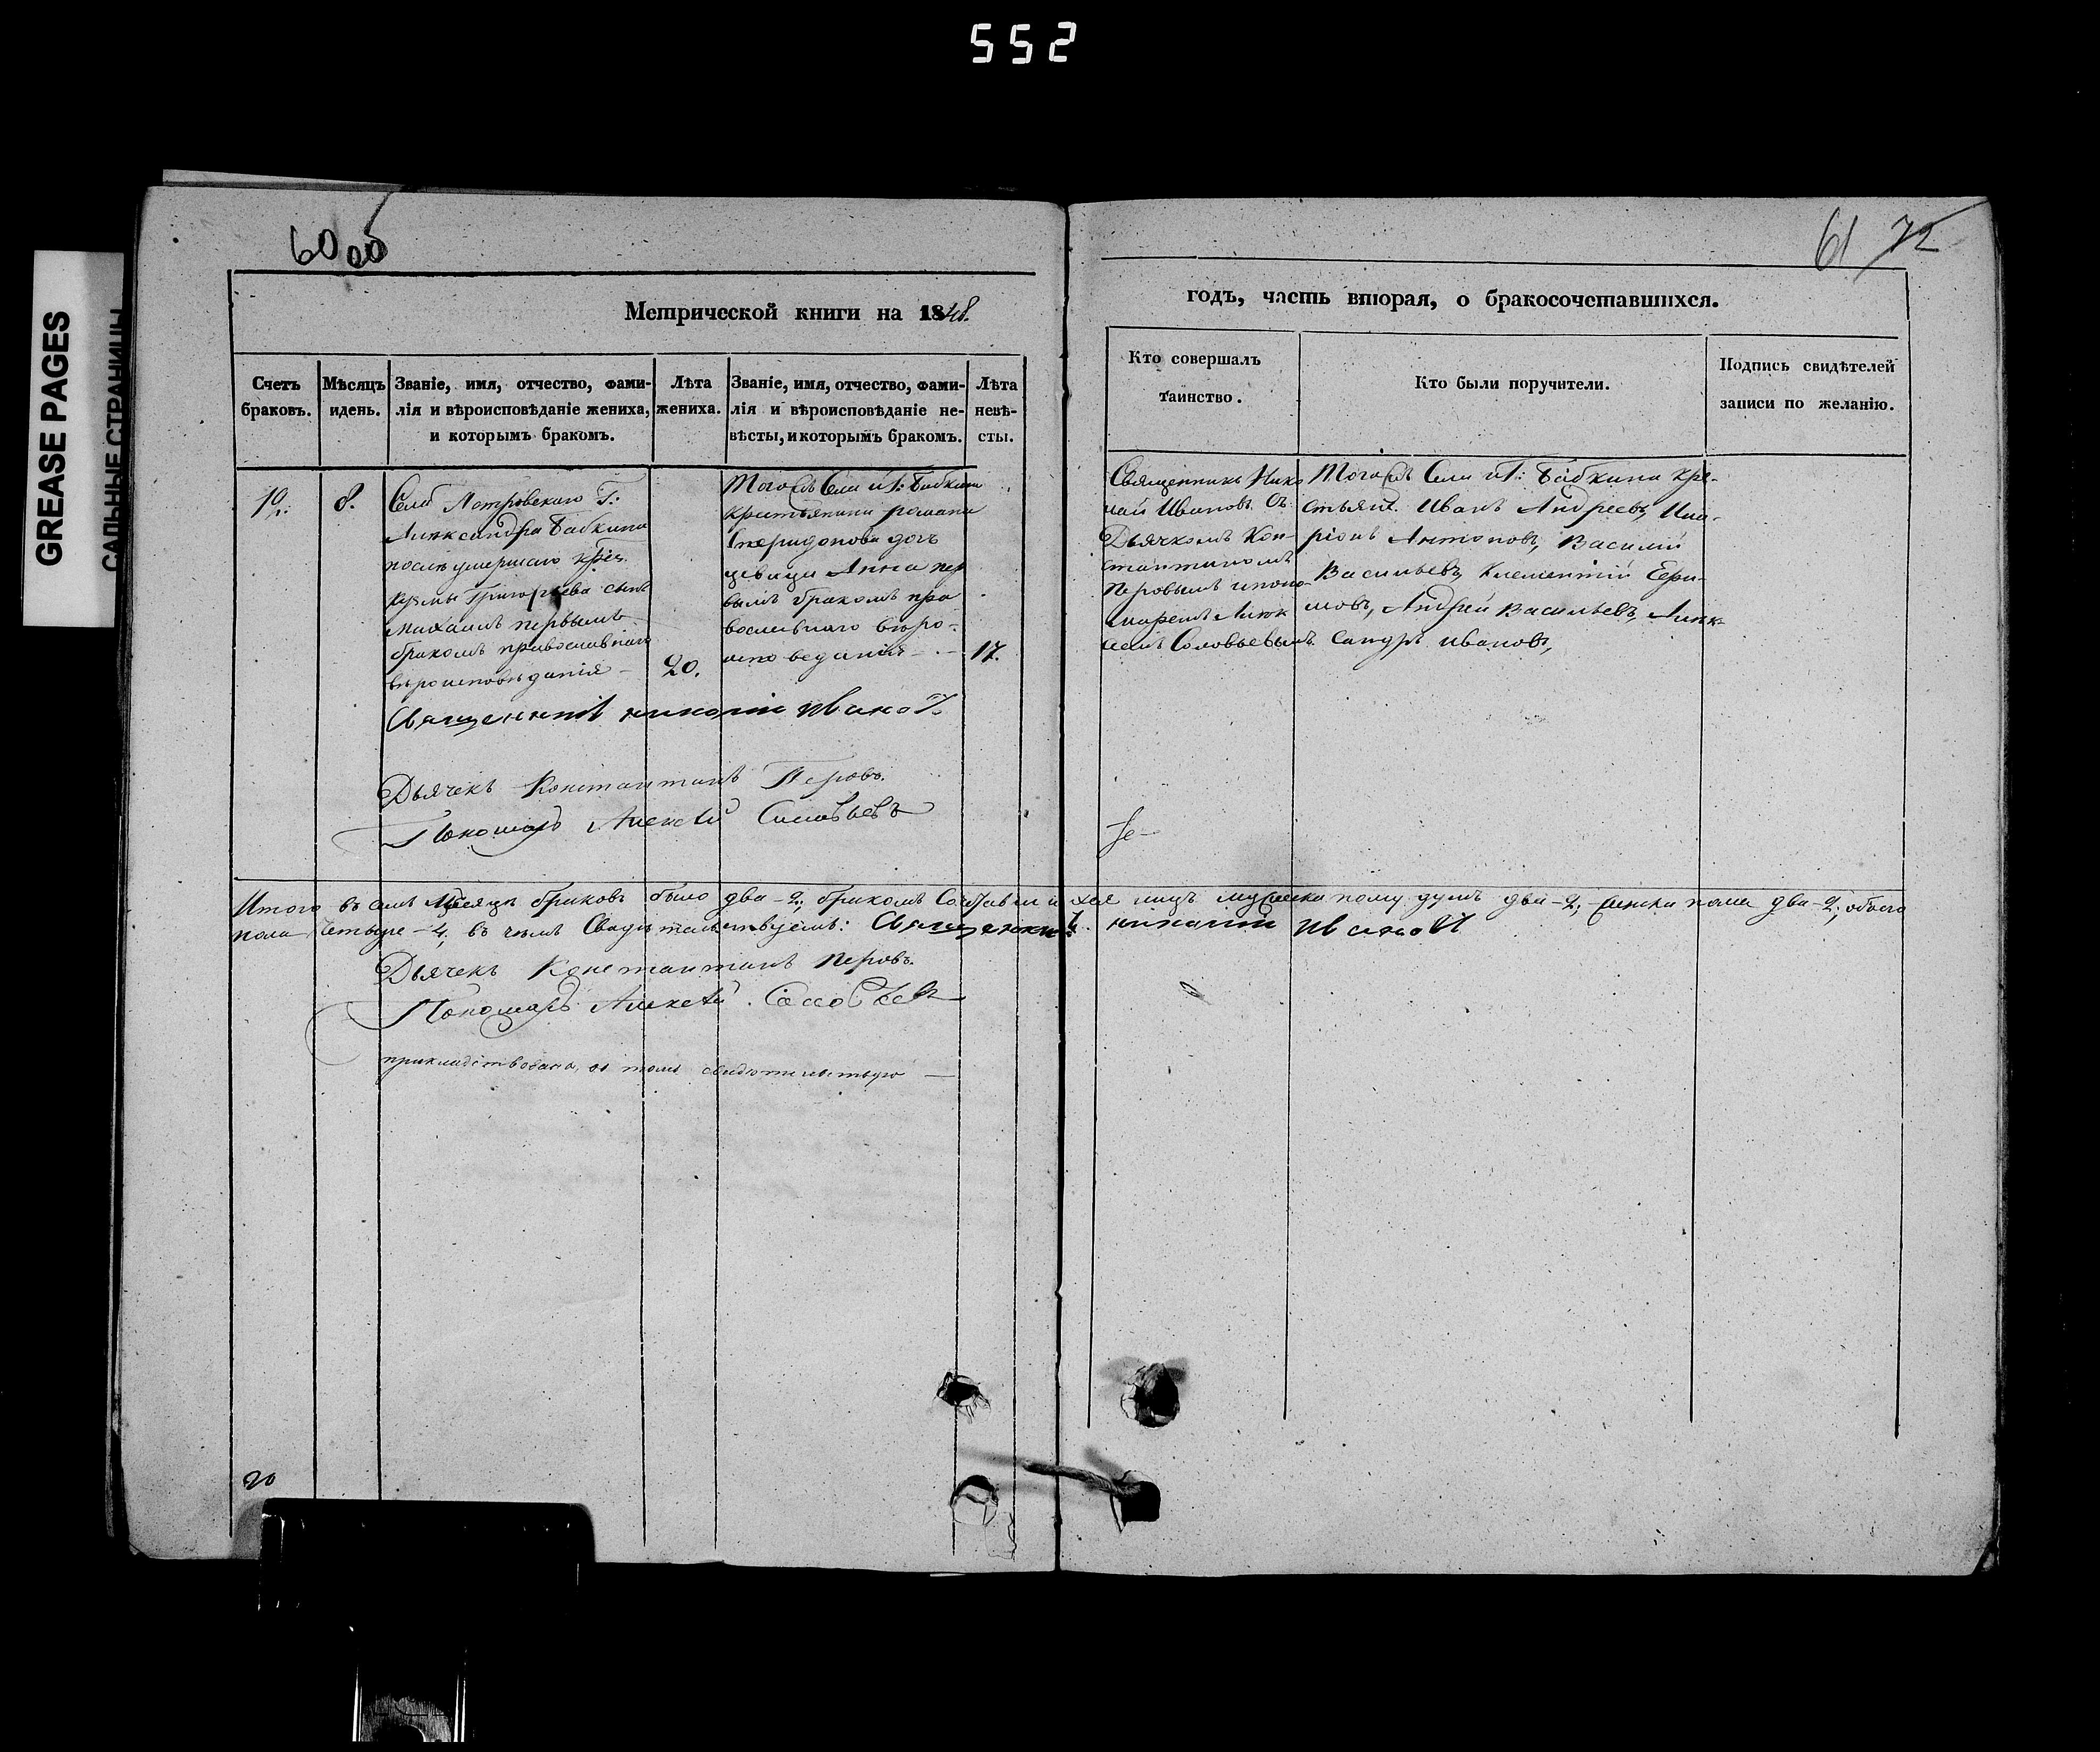 552
GREASE PAGES
САЛЬНЫЕ СТРАНИЦЫ
60 об
61 72
Метрической книги на 1848.
годъ, часть вторая, о бракосочетавшихся.
Счетъ браковъ.
Мѣсяцъ идень.
Званіе, имя, отчество, фами-
лія и вѣроисповѣданіе жениха,
и которымъ бракомъ.
Лѣта
жениха.
Званіе, имя, отчество, фами-
лія и вѣроисповѣданіе не-
вѣсты, и которымъ бракомъ.
Лѣта
невѣ-
сты.
Кто совершалъ
таинство.
Кто были поручители.
Подпись свидѣтелей
записи по желанію.
10.
8.
Села Петровскаго Г:
Александра Бабкина
послѣ умершаго крес.
Кузмы Григорьева сынъ
Михаилъ первымъ
бракомъ православнаго
вѣроисповѣданія –
20.
Тогожъ Села и Г: Бабкина
крестьянина романа
Спиридонова дочь
девица Анна пер
вымъ бракомъ пра
вославнаго вѣро-
исповеданія
17.
Священникъ Нико
лай Ивановъ Съ
Дьячкомъ Кон-
стантиномъ
Перовымъ и поно-
маремъ Алек
сеемъ Соловьевымъ
Тогожъ Села и Г: Бабкина кре-
стьяне. Иванъ Андреевъ, Ила-
ріонъ Антоновъ, Василій
Васильевъ, Клементій Ефи-
мовъ, Андрей Васильевъ, Алек-
сандръ Ивановъ,
Священникъ николай ивановъ
Дьячекъ Константинъ Перовъ.
Пономарь Алексей Соловьевъ
Итого въ семъ Месяце браковъ было два – 2; бракомъ Сочетавшихся лицъ мужеска полу душъ два – 2; женска пола два – 2; обоего
пола четыре – 4, въ чемъ Свидетельствуемъ: Священникъ николай ивановъ
Дьячекъ Константинъ Перовъ.
Пономарь Алексей Соловьевъ
20